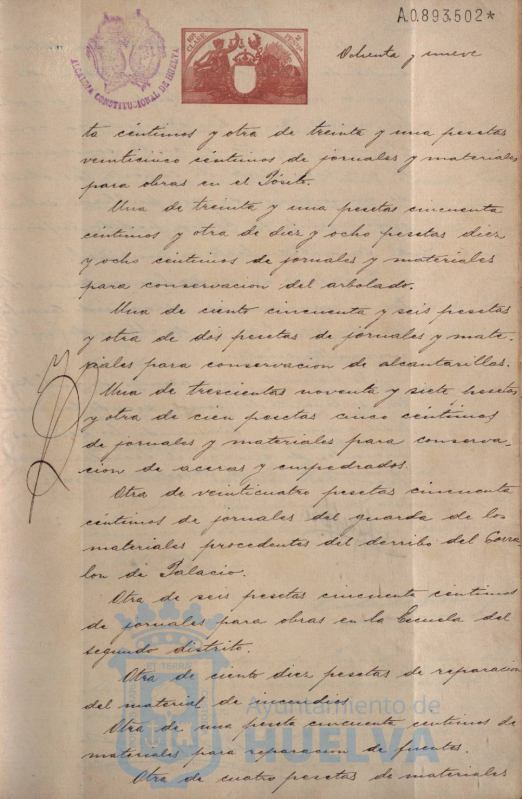 A.0.893.502*
ALCALDIA CONSTITUCIONAL DE HUELVA
Ochenta y nueve
ta céntimos y otra de treinta y una pesetas
veinticinco céntimos de jornales y materiales
para obras en el Pósito.
Una de treinta y una pesetas cincuenta
céntimos y otra de diez y ocho pesetas diez
y ocho centimos de jornales y materiales
para conservacion del arbolado.
Una de ciento cincuenta y seis pesetas
y otra de dos pesetas de jornales y mate-
riales para conservacion de alcantarillas.
Una de trescientas noventa y siete pesetas
y otra de cien pesetas cinco céntimos
de jornales y materiales para conserva-
cion de aceras y empedrados.
Otra de veinticuatro pesetas cincuenta
céntimos de jornales del guarda de los
materiales procedentes del derribo del Corra
lon de Palacio.
Otra de seis pesetas cincuenta centimos
de jornales para obras en la Escuela del
segundo distrito.
Otra de ciento diez pesetas de reparacion
del material de incendios.
Otra de una peseta cincuenta centimos de
materiales para reparacion de fuentes.
Otra de cuatro pesetas de materiales
Ayuntamiento de
HUELVA